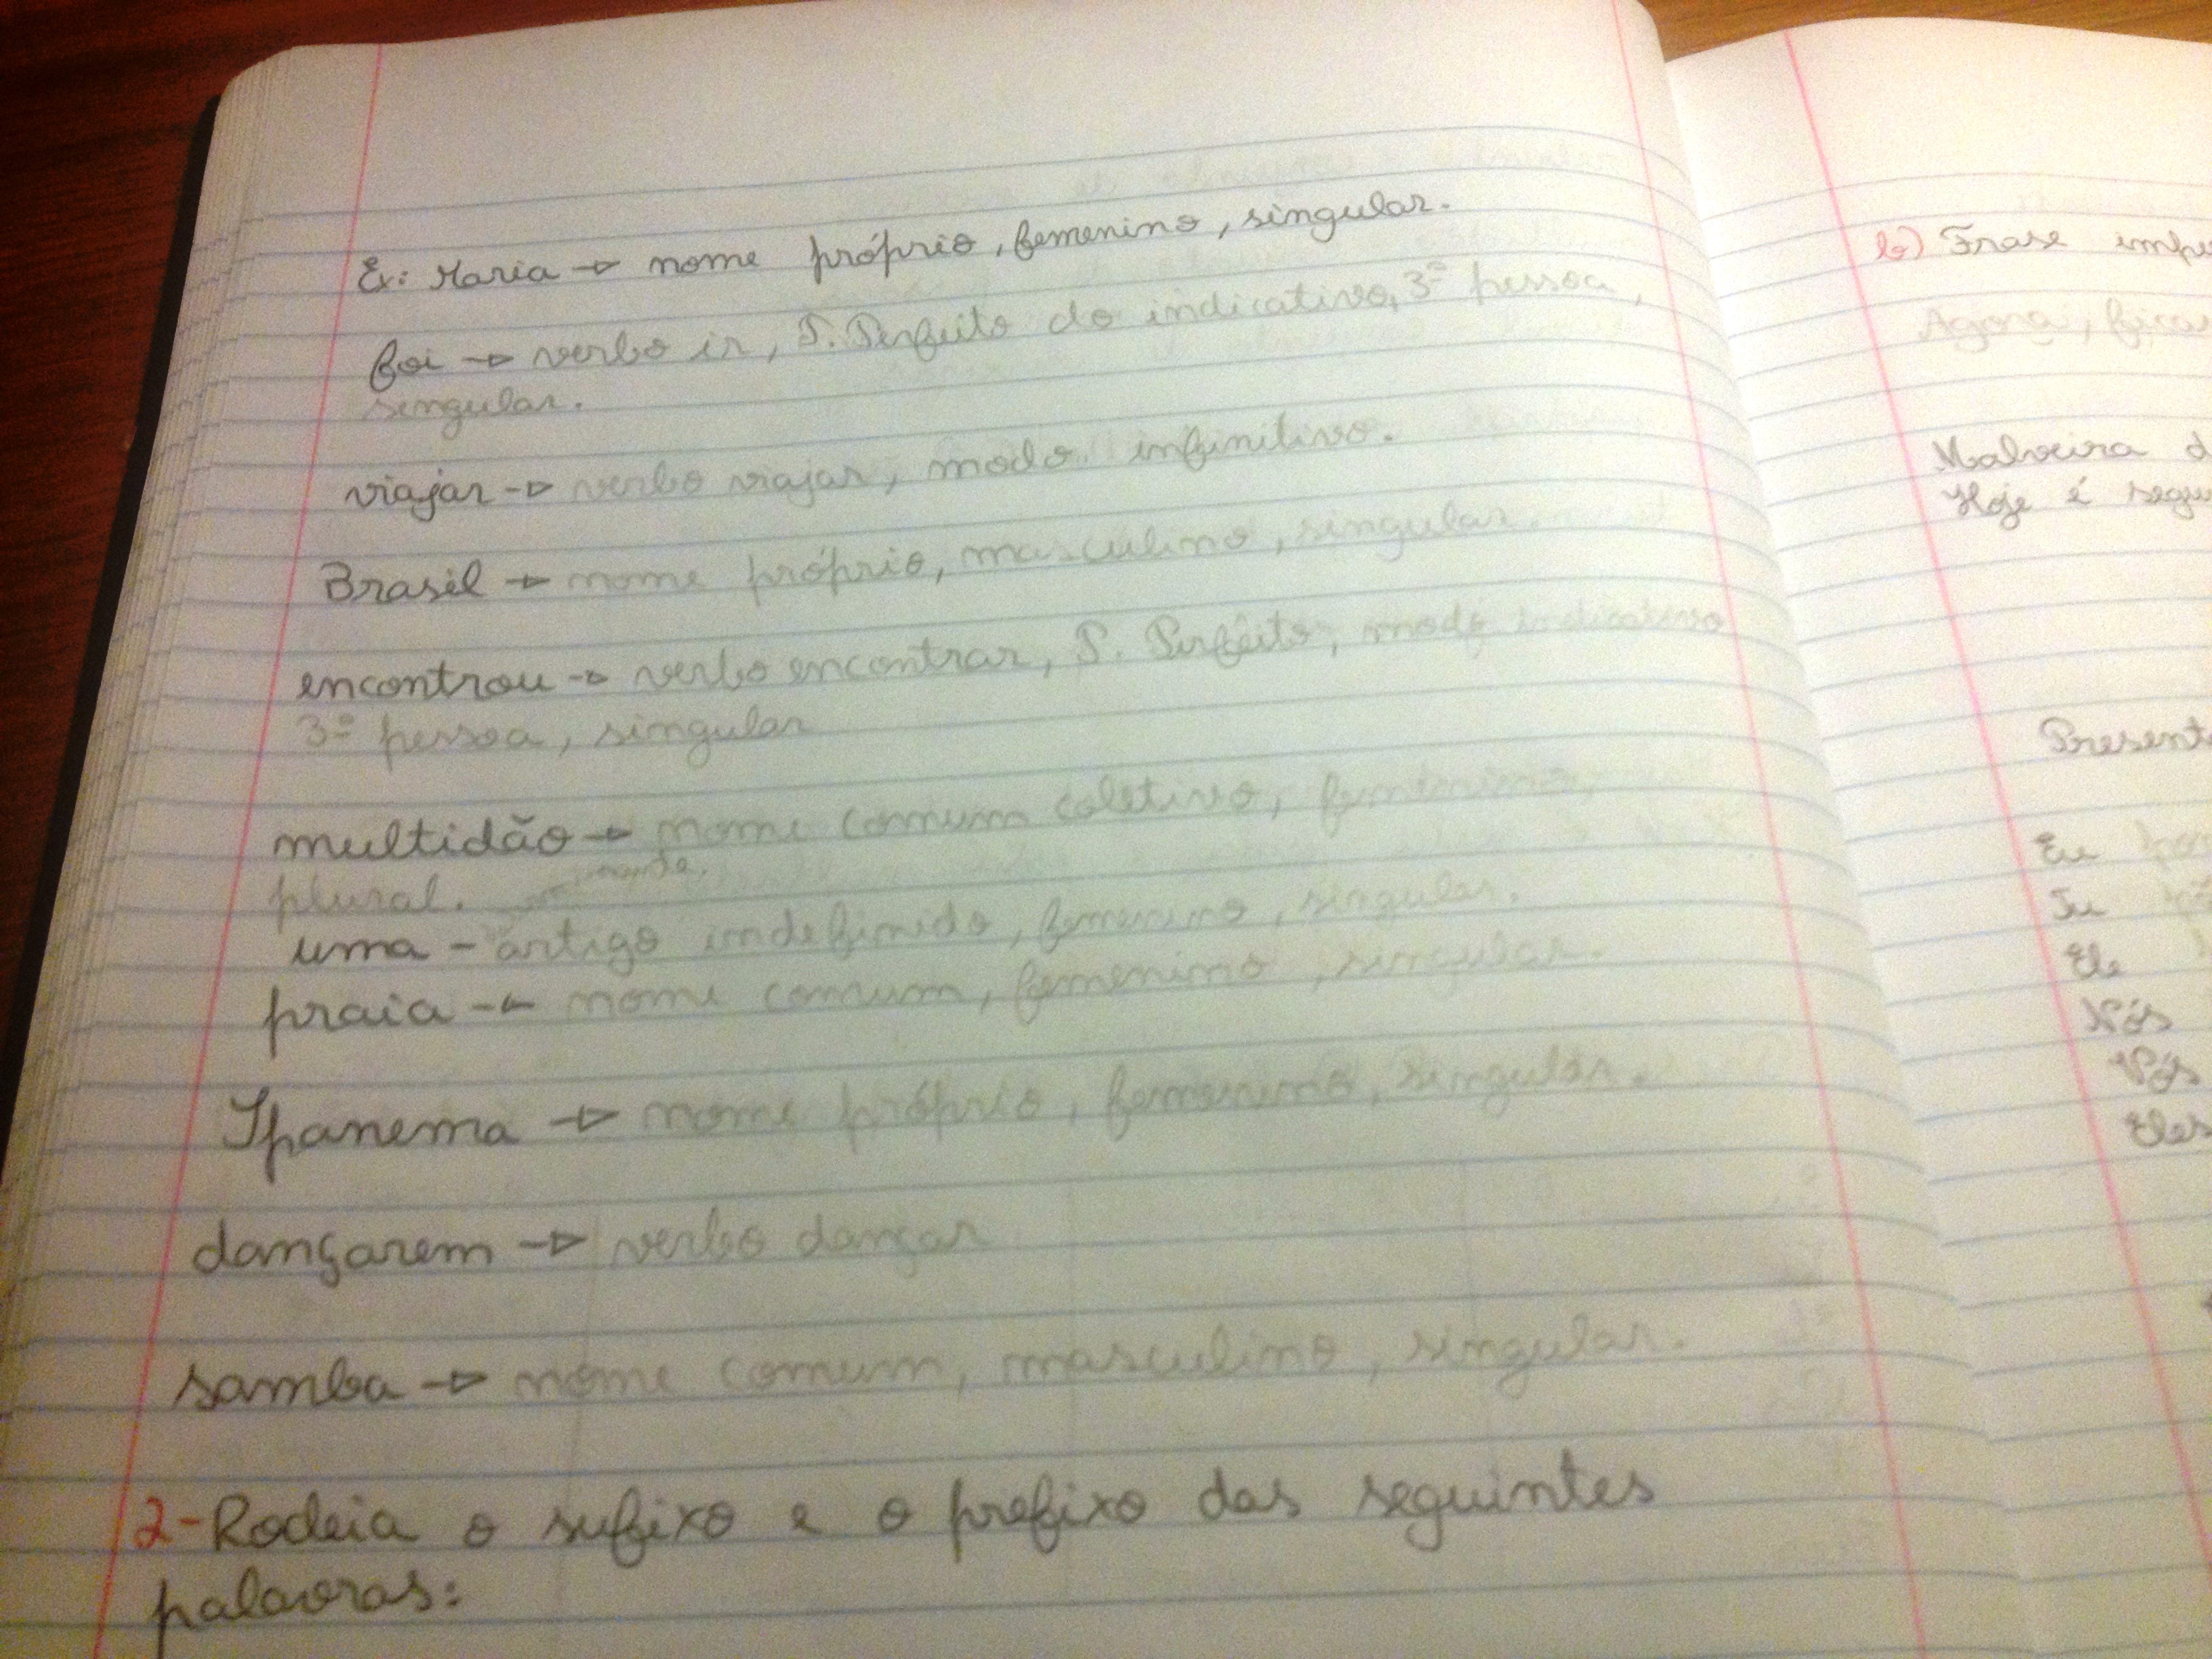 Ex: Maria → nome próprio, femenino, singular.
foi → verbo ir, P. Perfeito do indicativo, 3ª pessoa,
singular.
viajar → verbo viajar, modo infinitivo.
Brasil → nome próprio, masculino, singular.
encontrou → verbo encontrar, P. Perfeito, modo indicativo
3ª pessoa, singular
multidão → nome comum coletivo, femenino,
plural.
uma - artigo indefinido, femenino, singular.
praia → nome comum, femenino, singular.
Ipanema → nome próprio, femenino, singular.
dançarem → verbo dançar
samba → nome comum, masculino, singular.
2-Rodeia o sufixo e o prefixo das seguintes
palavras:
b) Frase
Agora,
Malveira
Hoje é
Eu
Tu
Ele
Nós
Vós
Eles